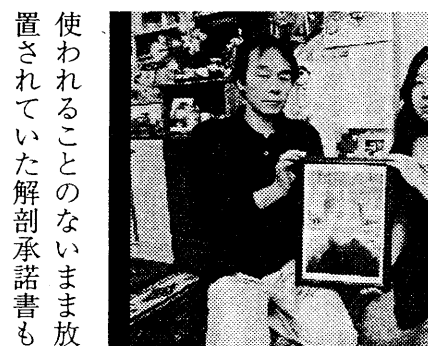 使われることのないまま放
置されていた解剖承諾書も